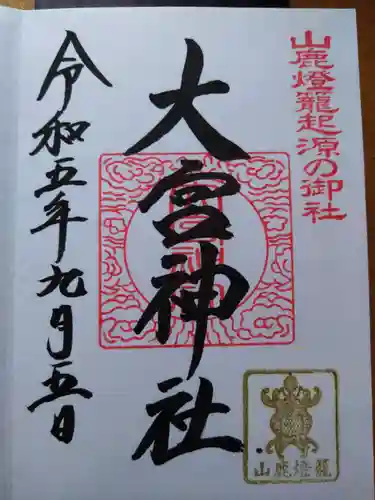 山鹿燈籠起源の御社
大宮神社
令和五年九月五日
山鹿燈籠